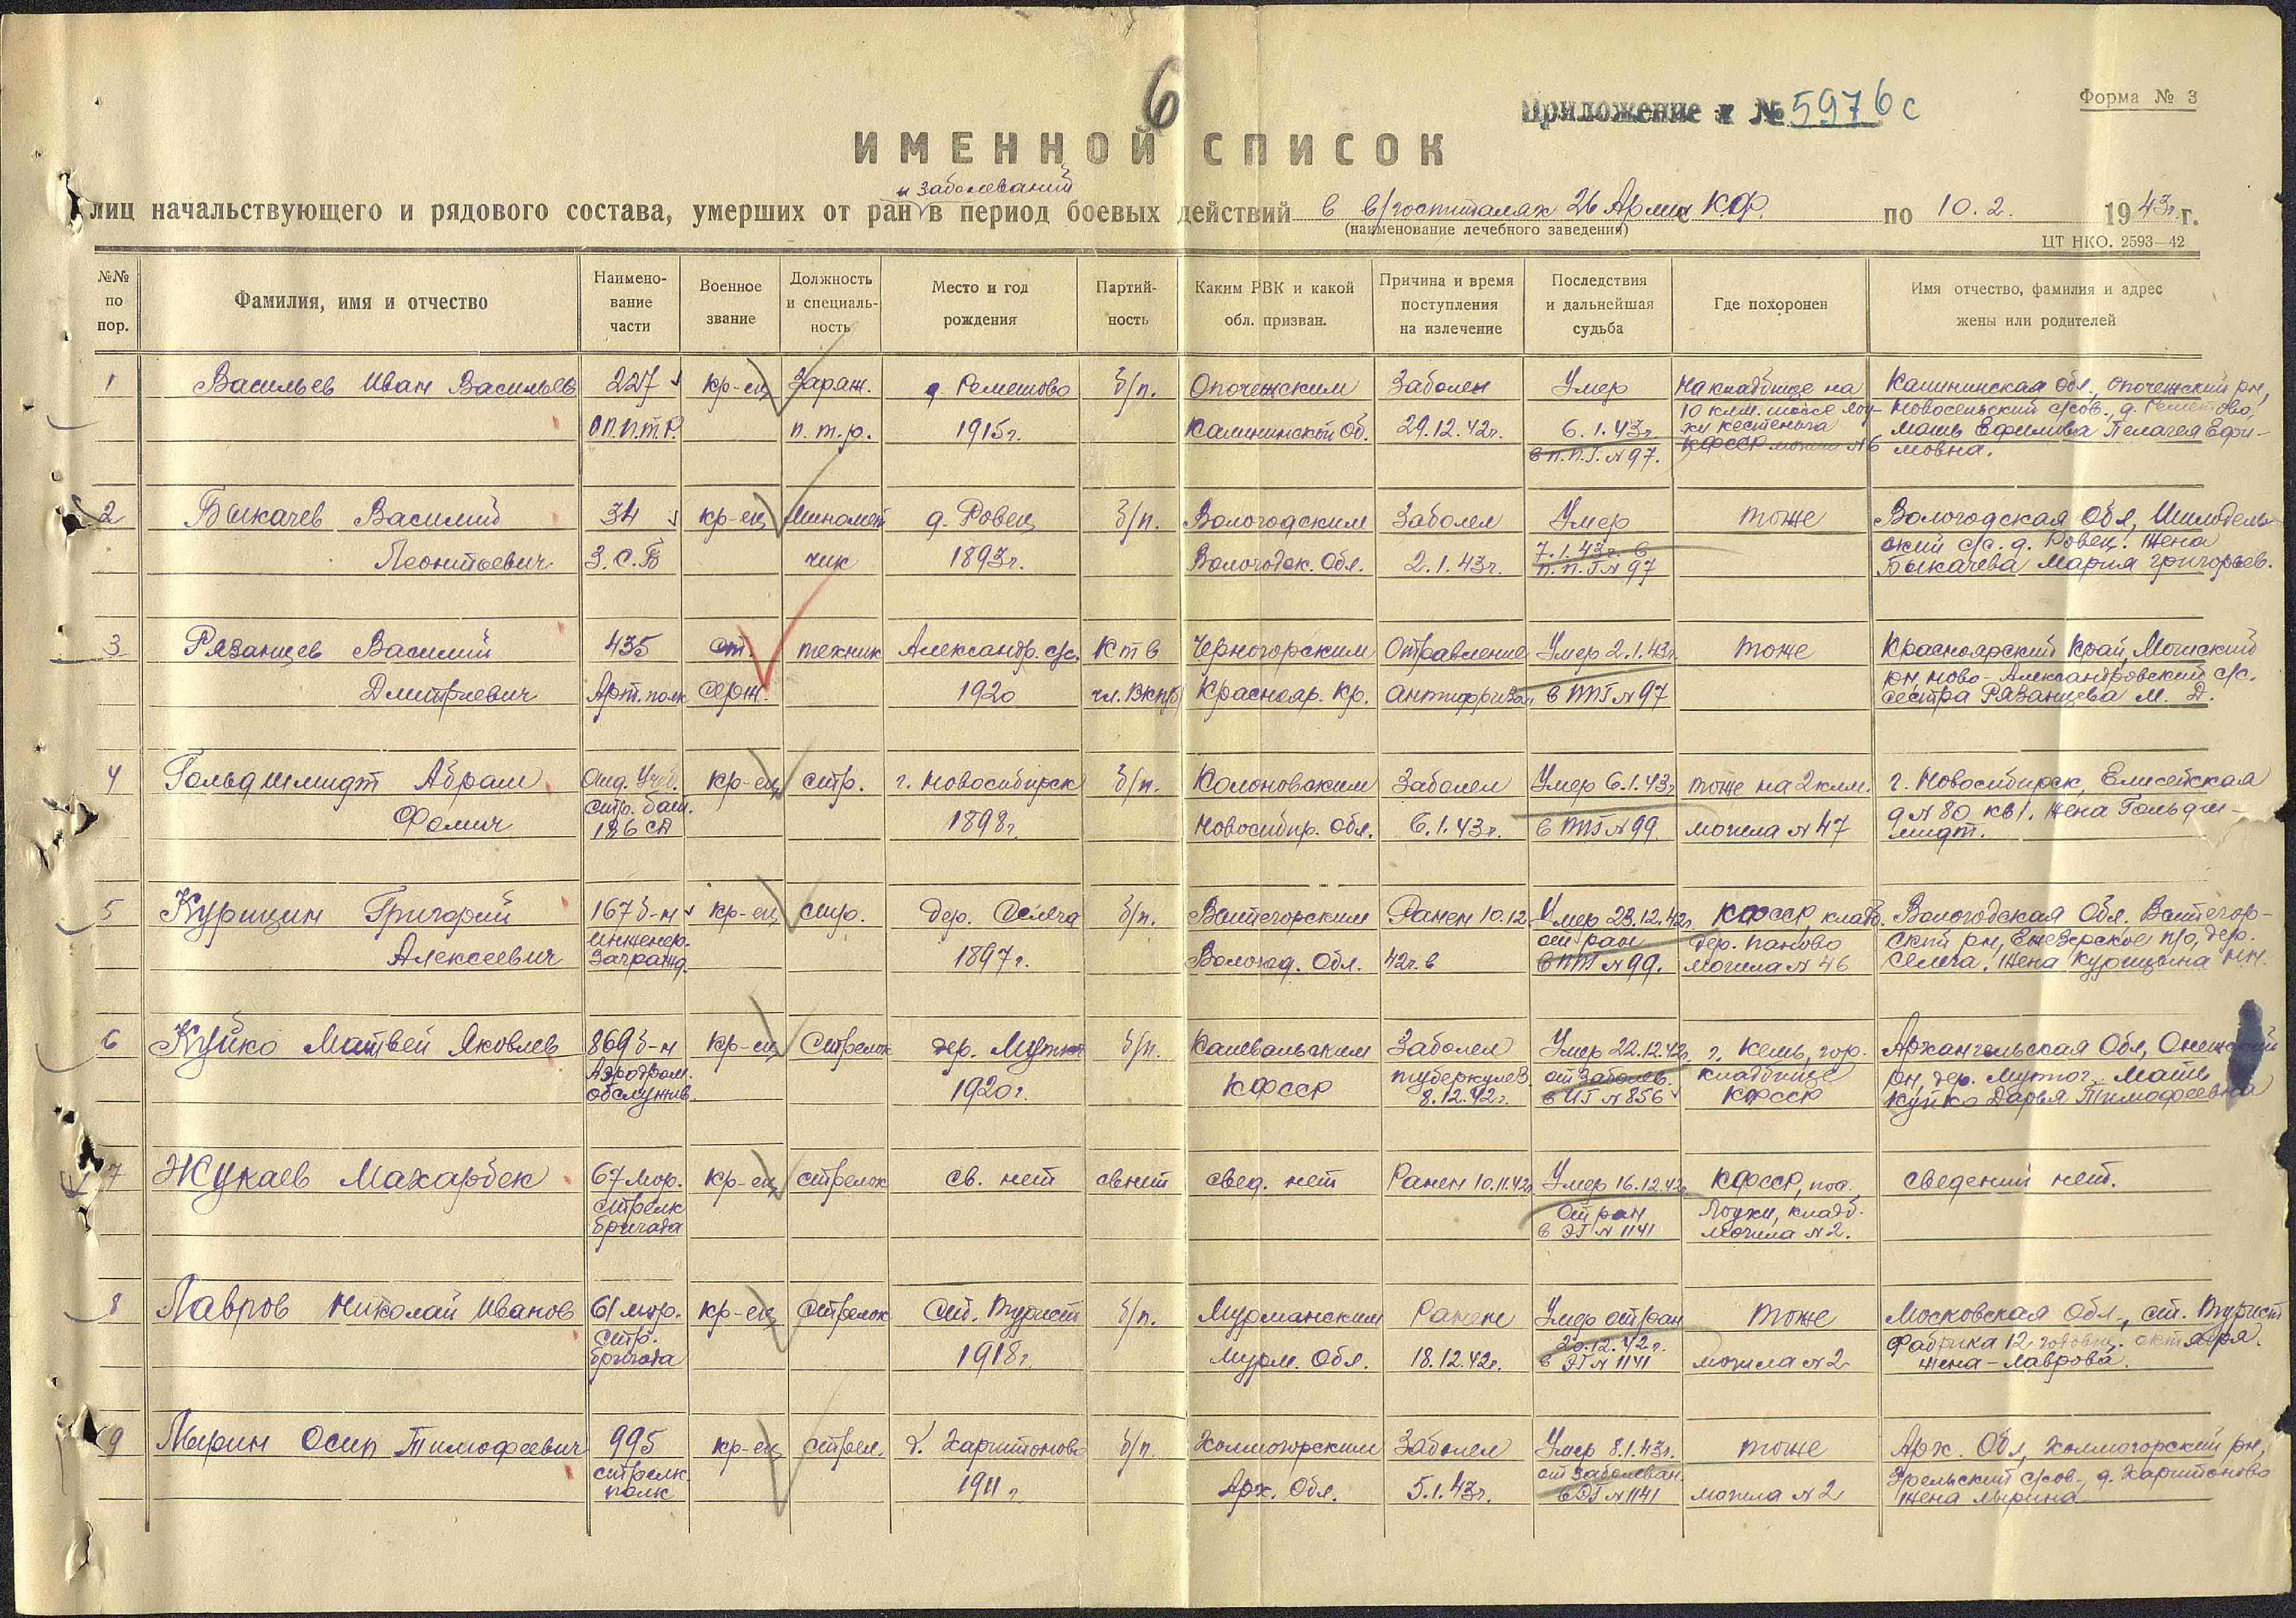 6
Приложение к № 5976с
Форма № 3
ИМЕННОЙ СПИСОК
и заболеваний
лиц начальствующего и рядового состава, умерших от ран в период боевых действий в в/госпиталях 26 Армии К.Ф. с по 10.2. 1943г. г.
(наименование лечебного заведения)
ЦТ НКО. 2593—42
№№ по пор.
Фамилия, имя и отчество
Наимено-
вание
части
Военное
звание
Должность
и специаль-
ность
Место и год
рождения
Партий-
ность
Каким РВК и какой
обл. призван.
Причина и время
поступления
на излечение
Последствия
и дальнейшая
судьба
Где похоронен
Имя отчество, фамилия и адрес
жены или родителей
1
Васильев Иван Васильев
227
ОП.П.Т.Р.
кр-ец
Заряж.
п.т.р.
д. Ремешово
1915г.
б/п.
Опочежским
Калининской Об.
Заболел
29.12.42г.
Умер
6.1.43г
в П.П.Г. №97.
На кладбище на
10 клм. шоссе Лоу-
хи Кестеньга
КФССР могила №6
Калининская Обл., Опочежский рн,
Новосельский с/сов., д. Ремешово,
мать Ефимова Пелагея Ефи-
мовна.
2
Быкачев Василий
Леонтьевич
34
З.С.Б
кр-ец
Миномет
чик
д. Ровец
1893г.
б/п.
Вологодским
Вологодск. Обл.
Заболел
2.1.43г.
Умер
7.1.43г. в
П.П.Г №97
тоже
Вологодская Обл,
ский с/с. д. Ровец. Жена
Быкачева Мария Григорьев.
3
Рязанцев Василий
Дмитриевич
435
Арт. полк
ст.
серж.
техник
Александр. с/с.
1920
К-т в
чл. ВКП(б)
Черногорским
Краснояр. Кр.
Отравление
антифризом
Умер 2.1.43г.
в ППГ №97
тоже
Красноярский Край,
рн, Ново-Александровский с/с.
сестра Рязанцева М. Д.
4
Гольдшмидт Абрам
Фомич
Отд. Учеб.
стр. бат.
186 СД
кр-ец
стр.
г. Новосибирск
1898г
б/п.
Новосибир. Обл.
Заболел
6.1.43г.
Умер 6.1.43г
в ППГ №99
тоже на 2 клм.
могила №47
г. Новосибирск, Енисейская
д №80 кв1. Жена Гольдш-
мидт.
5
Курицин Григорий
Алексеевич
167 б-н
инженер.
Загражд.
кр-ец
стр.
Дер. Селега
1897г.
б/п.
Вытегорским
Вологод. Обл.
Ранен 10.12.
42г. в
Умер 23.12.42г
от ран
в ППГ №99.
КФССР, кладб.
дер. Паново
могила №46
Вологодская Обл. Вытегор-
ский рн, п/о, дер.
Селега. Жена Курицына
6
Куйко Матвей Яковлев
869 б-н
Аэродром.
обслужив.
кр-ец
Стрелок
дер.
1920г.
б/п.
КФССР
Заболел
туберкулез.
8.12.42г.
Умер 22.12.42г.
от заболев.
в ИГ №856
г. Кемь, гор.
кладбище
КФССР
Архангельская Обл, Онежский
рн, дер. Мать
Куйко Дарья Тимофеевна
7
Жукаев Махарбек
67 Мор.
стрелк
бригада
кр-ец
стрелок
св. нет
св нет
свед. нет
Ранен 10.11.42г
Умер 16.12.42г
от ран
в ЭГ №1141
КФССР, пос.
Лоухи, кладб.
могила №2.
сведений нет.
8
Лавров Николай Иванов
61 мор.
стр.
бригада
кр-ец
Стрелок
Ст. Турист
1918г.
б/п.
Мурманским
Мурм. Обл.
Ранен
18.12.42г.
Умер от ран
20.12.42г.
в ЭГ №1141
тоже
могила №2
Московская Обл., ст. Турист
Фабрика 12 годовщ. октября.
жена - Лаврова.
9
Мырин Осип Тимофеевич
995
стрелк.
полк
кр-ец
стрел.
д. Харитоново
1911г.
б/п.
Холмогорским
Арх. Обл.
Заболел
5.1.43г.
Умер 8.1.43г.
от заболеван.
в ЭГ №1141
тоже
могила №2
Арх. Обл, Холмогорский рн,
с/сов., д. Харитоново
Жена Мырина